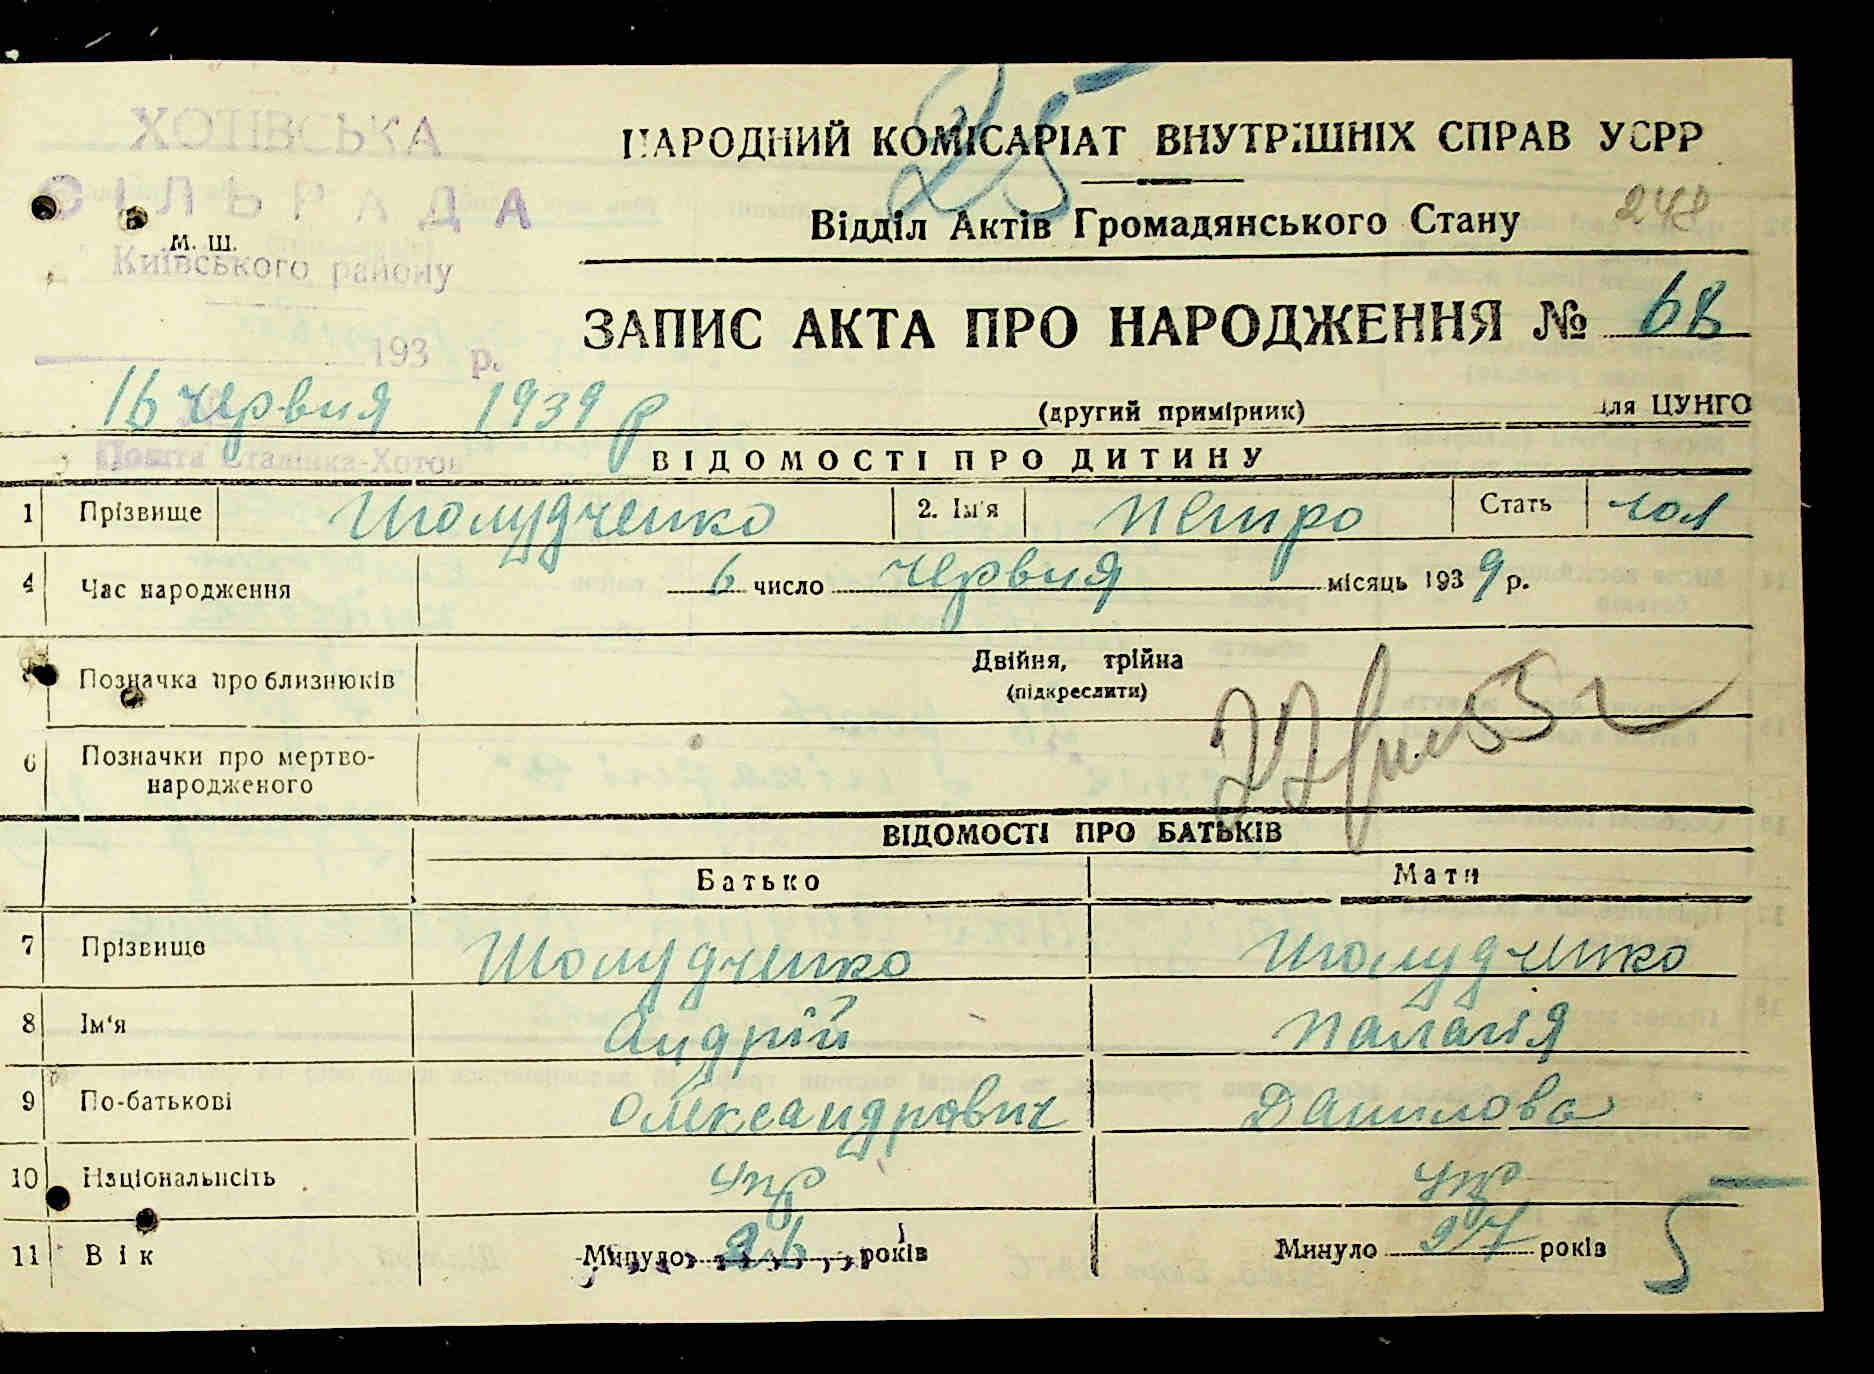 25
ХОТІВСЬКА
СІЛЬРАДА
м. ш.
Київського району
193 р.
16 червня 1939 р
Пошта Сталінка-Хотов
НАРОДНИЙ КОМІСАРІАТ ВНУТРІШНІХ СПРАВ УСРР
Відділ Актів Громадянського Стану 248
ЗАПИС АКТА ПРО НАРОДЖЕННЯ № 68
(другий примірник) для ЦУНГО
ВІДОМОСТІ ПРО ДИТИНУ
1 Прізвище Шолудченко 2. Ім'я Петро Стать чол
4 Час народження 6 число червня місяць 1939 р.
Позначка про близнюків Двійня, трійна
(підкреслити)
6 Позначки про мертво-
народженого
ВІДОМОСТІ ПРО БАТЬКІВ
Батько Мати
7 Прізвище Шолудченко Шолудченко
8 Ім'я Андрій Палагія
9 По-батькові Олександрович Данилова
10 Національність укр укр
11 Вік Минуло 26 років Минуло 27 років 5